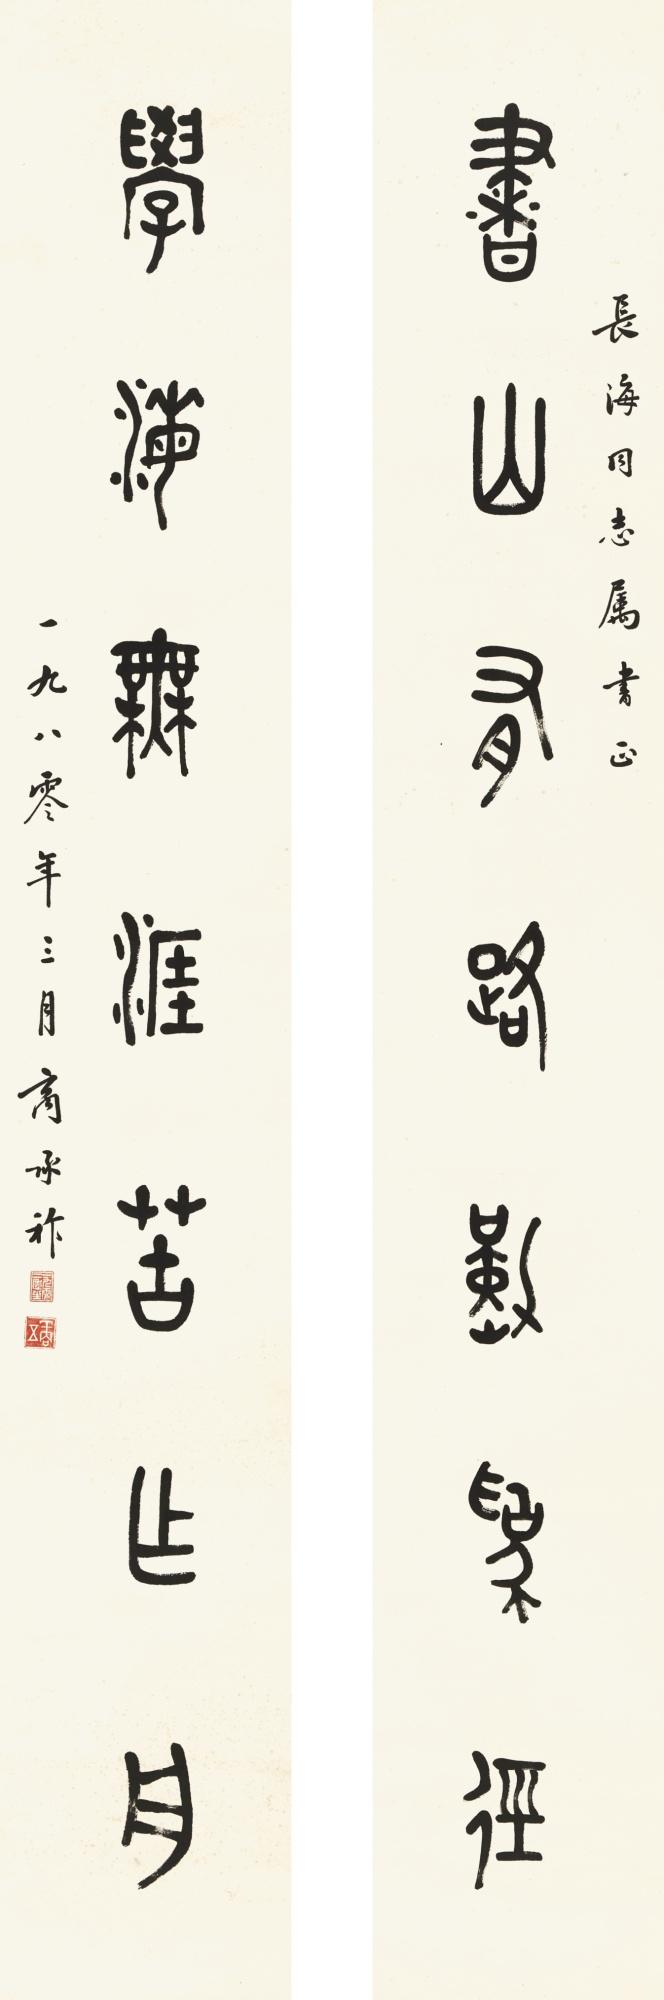 長海同志属書正
書山有路勤為徑
學海無涯苦作舟
一九八零年三月商承祚